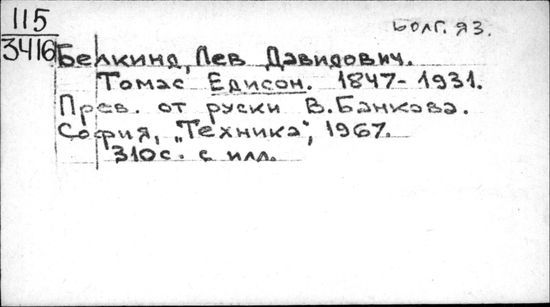 115
3416
Болг. яз.
Белкинд, Лев Давидович.
Томас Едисон. 1847-1931.
Прев. от руски В.Банкова.
София, "Техника", 1967.
310с. с илл.